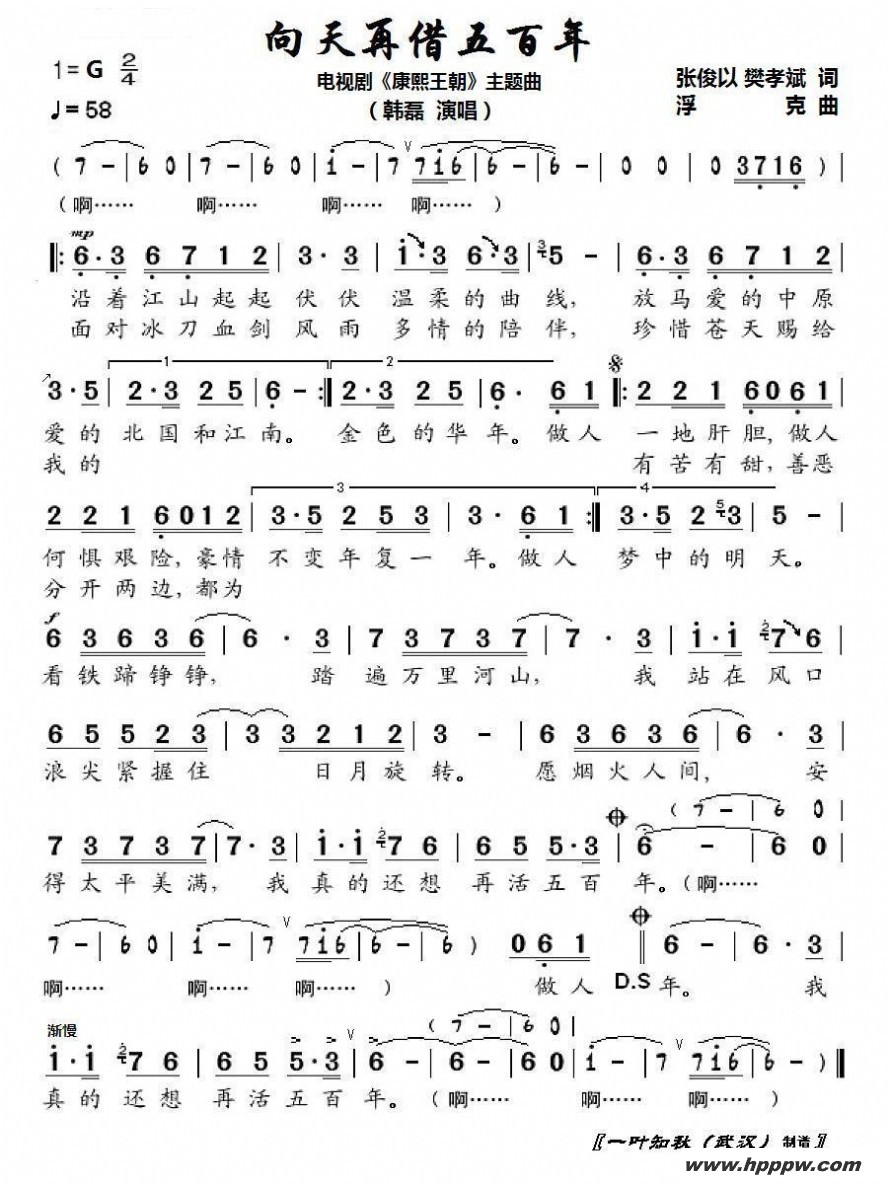 向天再借五百年
1=G 2/4
电视剧《康熙王朝》主题曲
张俊以 樊孝斌 词
♩=58
（韩磊 演唱）
浮 克 曲
( 7 - | 6 0 | 7 - | 6 0 | i - | 7 7i6 | 6 - | 6 - | 0 0 | 3716 ) |
（啊…… 啊…… 啊…… 啊……）
mp
‖: 6·3 6 7 1 2 | 3·3 i·3 6·3 | 5 - | 6·3 6 7 1 2 |
沿着江山起起伏伏温柔的曲线，放马爱的中原
面对冰刀血剑风雨多情的陪伴，珍惜苍天赐给
1 2
3·5 | 2·3 2 5 | 6 - :‖ 2·3 2 5 | 6· 6 1 ‖: 2 2 1 6061 |
爱的北国和江南。金色的华年。做人一地肝胆，做人
我的 有苦有甜，善恶
3 4
2 2 1 6012 | 3·5 2 5 3 | 3· 6 1 :‖ 3·5 2 3 | 5 - |
何惧艰险，豪情不变年复一年。做人梦中的明天。
分开两边，都为
f
6 3 6 3 6 | 6 · 3 | 7 3 7 3 7 | 7 · 3 | i·i 7 6 |
看铁蹄铮铮，踏遍万里河山，我站在风口
6 5 5 2 3 | 3 3 2 1 2 | 3 - | 6 3 6 3 6 | 6 · 3 |
浪尖紧握住日月旋转。愿烟火人间，安
( 7 - | 6 0 |
7 3 7 3 7 | 7·3 | i·i 7 6 | 6 5 5·3 | 6 - | 6 0 |
得太平美满，我真的还想再活五百年。（啊……
7 - | 6 0 | i - | 7 7i6 | 6 - | 6 - ) | 0 6 1 ‖ 6 - | 6·3 |
啊…… 啊…… 啊……） 做人 D.S 年。我
渐慢
( 7 - | 6 0 |
i·i 7 6 | 6 5 5·3 | 6 - | 6 0 | i - | 7 7i6 | 6 - | 6 - ) ‖
真的还想再活五百年。（啊…… 啊…… 啊……）
〖一叶知秋（武汉）制谱〗
www.hpppw.com